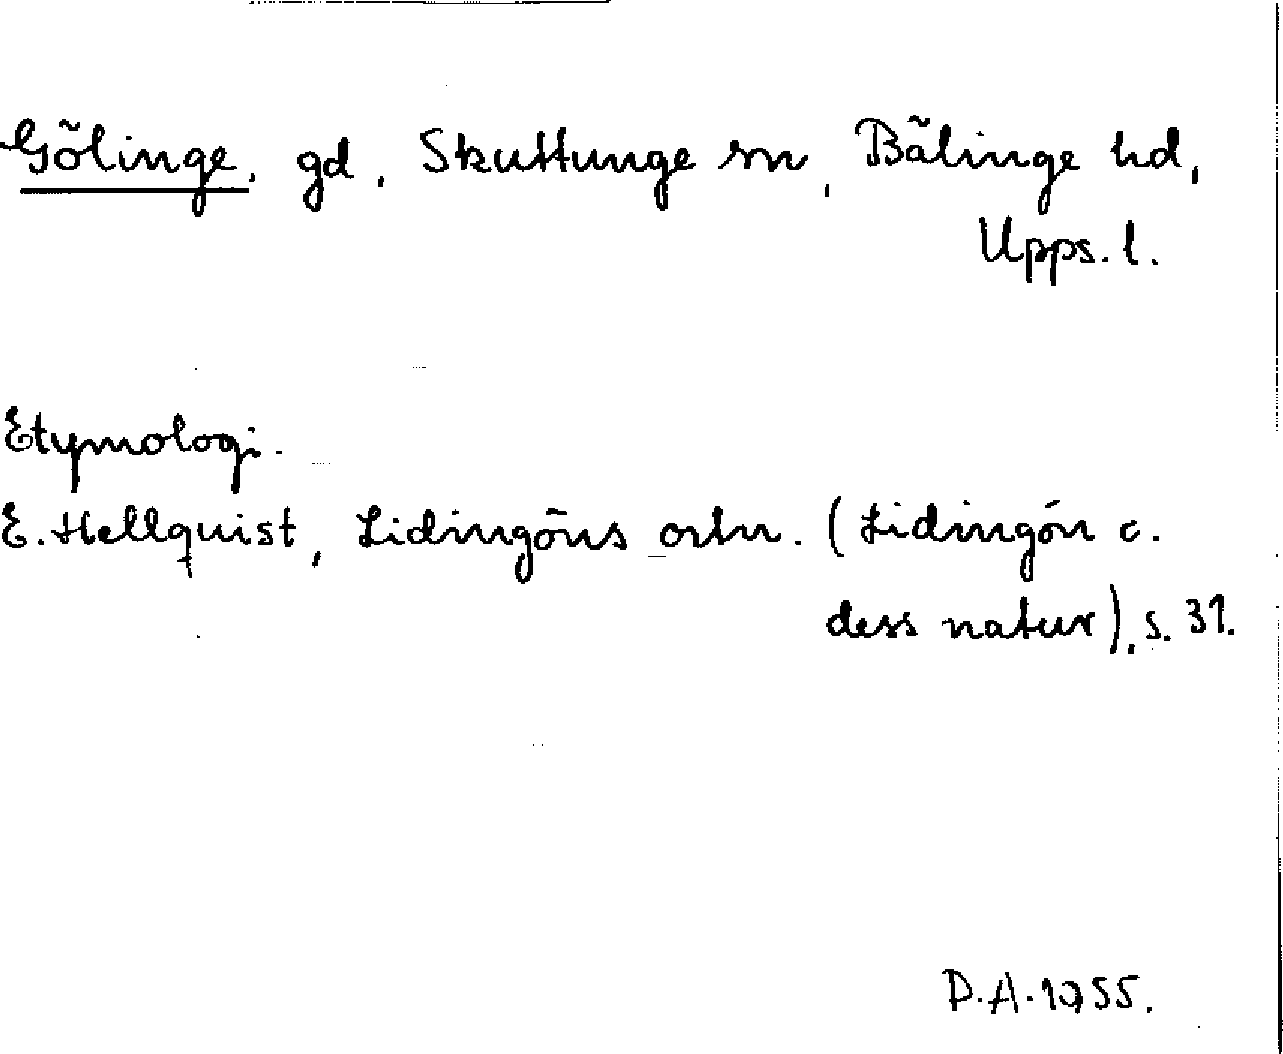 Gölinge, gd, Skuttunge sn, Bälinge hd,
Upps. l.
Etymologi.
E. Hellquist, Lidingöns ortn. (Lidingön o.
dess natur), s. 31.
D.A. 1955.